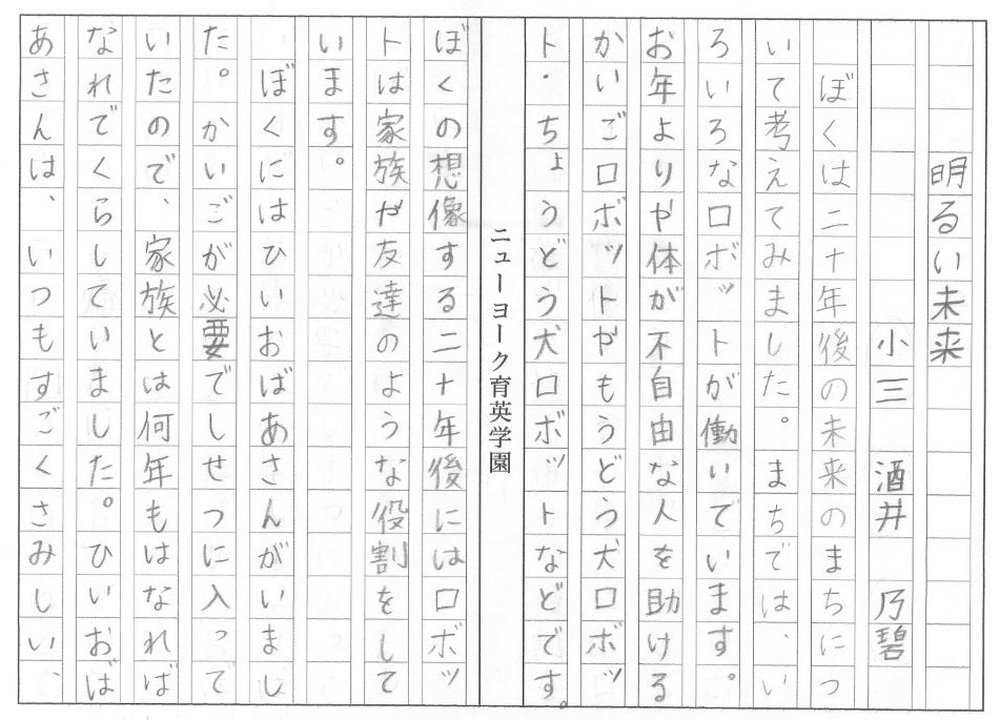 明るい未来
小三　酒井　乃碧
ぼくは二十年後の未来のまちにつ
いて考えてみました。まちでは、い
ろいろなロボットが働いています。
お年よりや体が不自由な人を助ける
かいごロボットやもうどう犬ロボッ
ト・ちょうどう犬ロボットなどです。
ニューヨーク育英学園
ぼくの想像する二十年後にはロボッ
トは家族や友達のような役割をして
います。
ぼくにはひいおばあさんがいまし
た。かいごが必要でしせつに入って
いたので、家族とは何年もはなれば
なれでくらしていました。ひいおば
あさんは、いつもすごくさみしい、